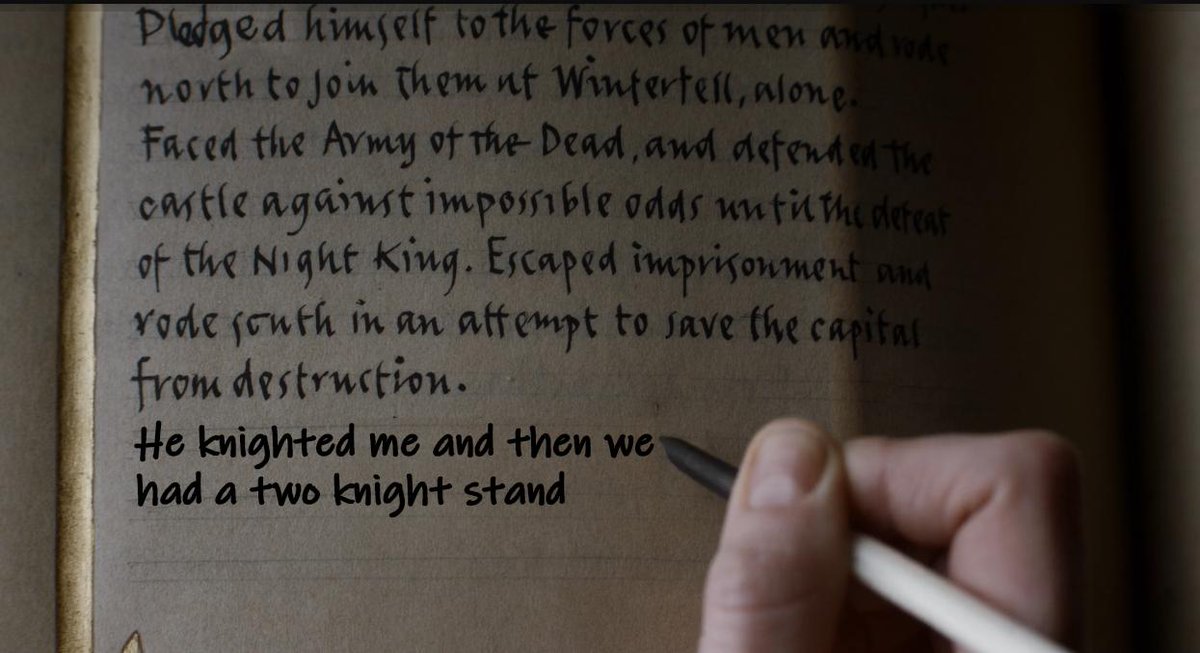 Pledged himself to the forces of men and rode
north to Join Them at Winterfell, alone.
Faced the Army of the Dead, and defended the
castle against impossible odds until the defeat
of the Night King. Escaped imprisonment and
rode south in an attempt to save the capital
from destruction.
He knighted me and then we
had a two knight stand